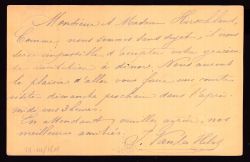 Monsieur et Madame Hirschland,
Comme nous sommes sujet, il nous
sera impossible d'accepter votre gracieuse
invitation à dîner. Nous aurons
le plaisir d'aller vous faire une courte
visite dimanche prochain dans l'après
midi vers 3 heures.
En attendant veuillez agréer, nos
meilleures amitiés.